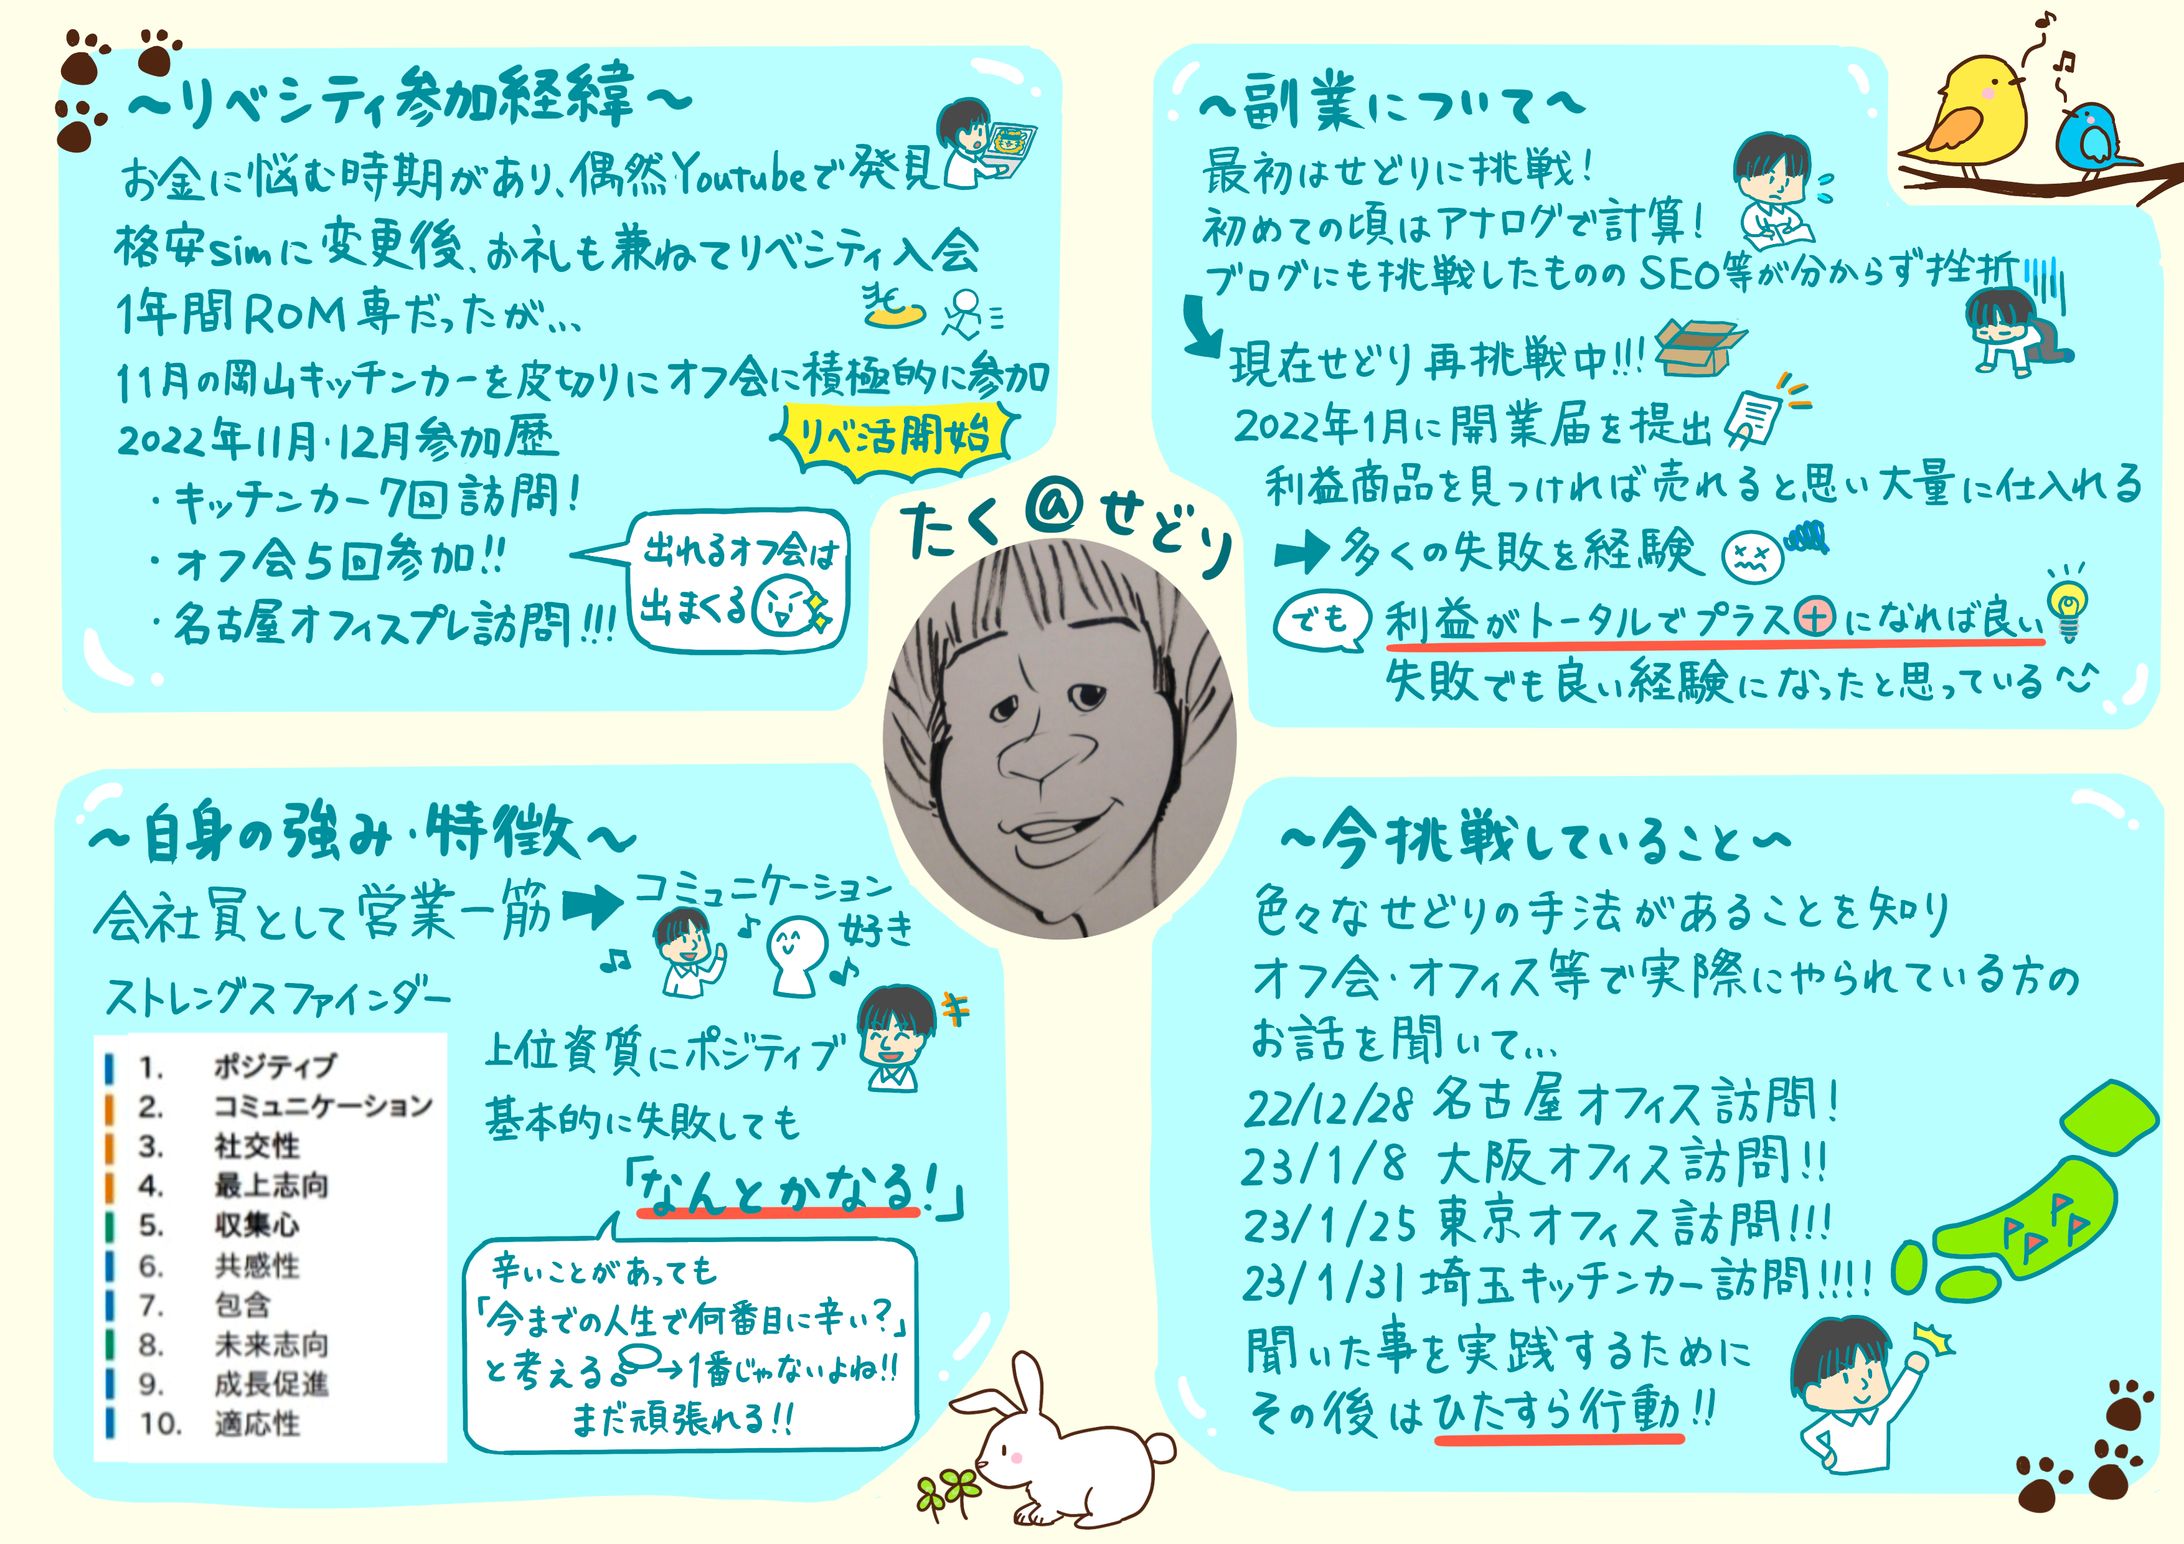 ～リベシティ参加経緯～
お金に悩む時期があり、偶然Youtubeで発見
格安simに変更後、お礼も兼ねてリベシティ入会
1年間ROM専だったが...
11月の岡山キッチンカーを皮切りにオフ会に積極的に参加
2022年11月・12月参加歴
リベ活開始
・キッチンカー7回訪問!
・オフ会5回参加!!
・名古屋オフィスプレ訪問!!!
出れるオフ会は
出まくる
～副業について～
最初はせどりに挑戦!
初めての頃はアナログで計算!
ブログにも挑戦したもののSEO等が分からず挫折
現在せどり再挑戦中!!!
2022年1月に開業届を提出
利益商品を見つければ売れると思い大量に仕入れる
→多くの失敗を経験
でも
利益がトータルでプラス+になれば良い
失敗でも良い経験になったと思っている
たく@せどり
～自身の強み・特徴～
会社員として営業一筋→コミュニケーション
好き
ストレングスファインダー
1. ポジティブ
2. コミュニケーション
3. 社交性
4. 最上志向
5. 収集心
6. 共感性
7. 包含
8. 未来志向
9. 成長促進
10. 適応性
上位資質にポジティブ
基本的に失敗しても
「なんとかなる!」
辛いことがあっても
「今までの人生で何番目に辛い?」
と考える→1番じゃないよね!!
まだ頑張れる!!
～今挑戦していること～
色々なせどりの手法があることを知り
オフ会・オフィス等で実際にやられている方の
お話を聞いて...
22/12/28 名古屋オフィス訪問!
23/1/8 大阪オフィス訪問!!
23/1/25 東京オフィス訪問!!!
23/1/31 埼玉キッチンカー訪問!!!!
聞いた事を実践するために
その後はひたすら行動!!